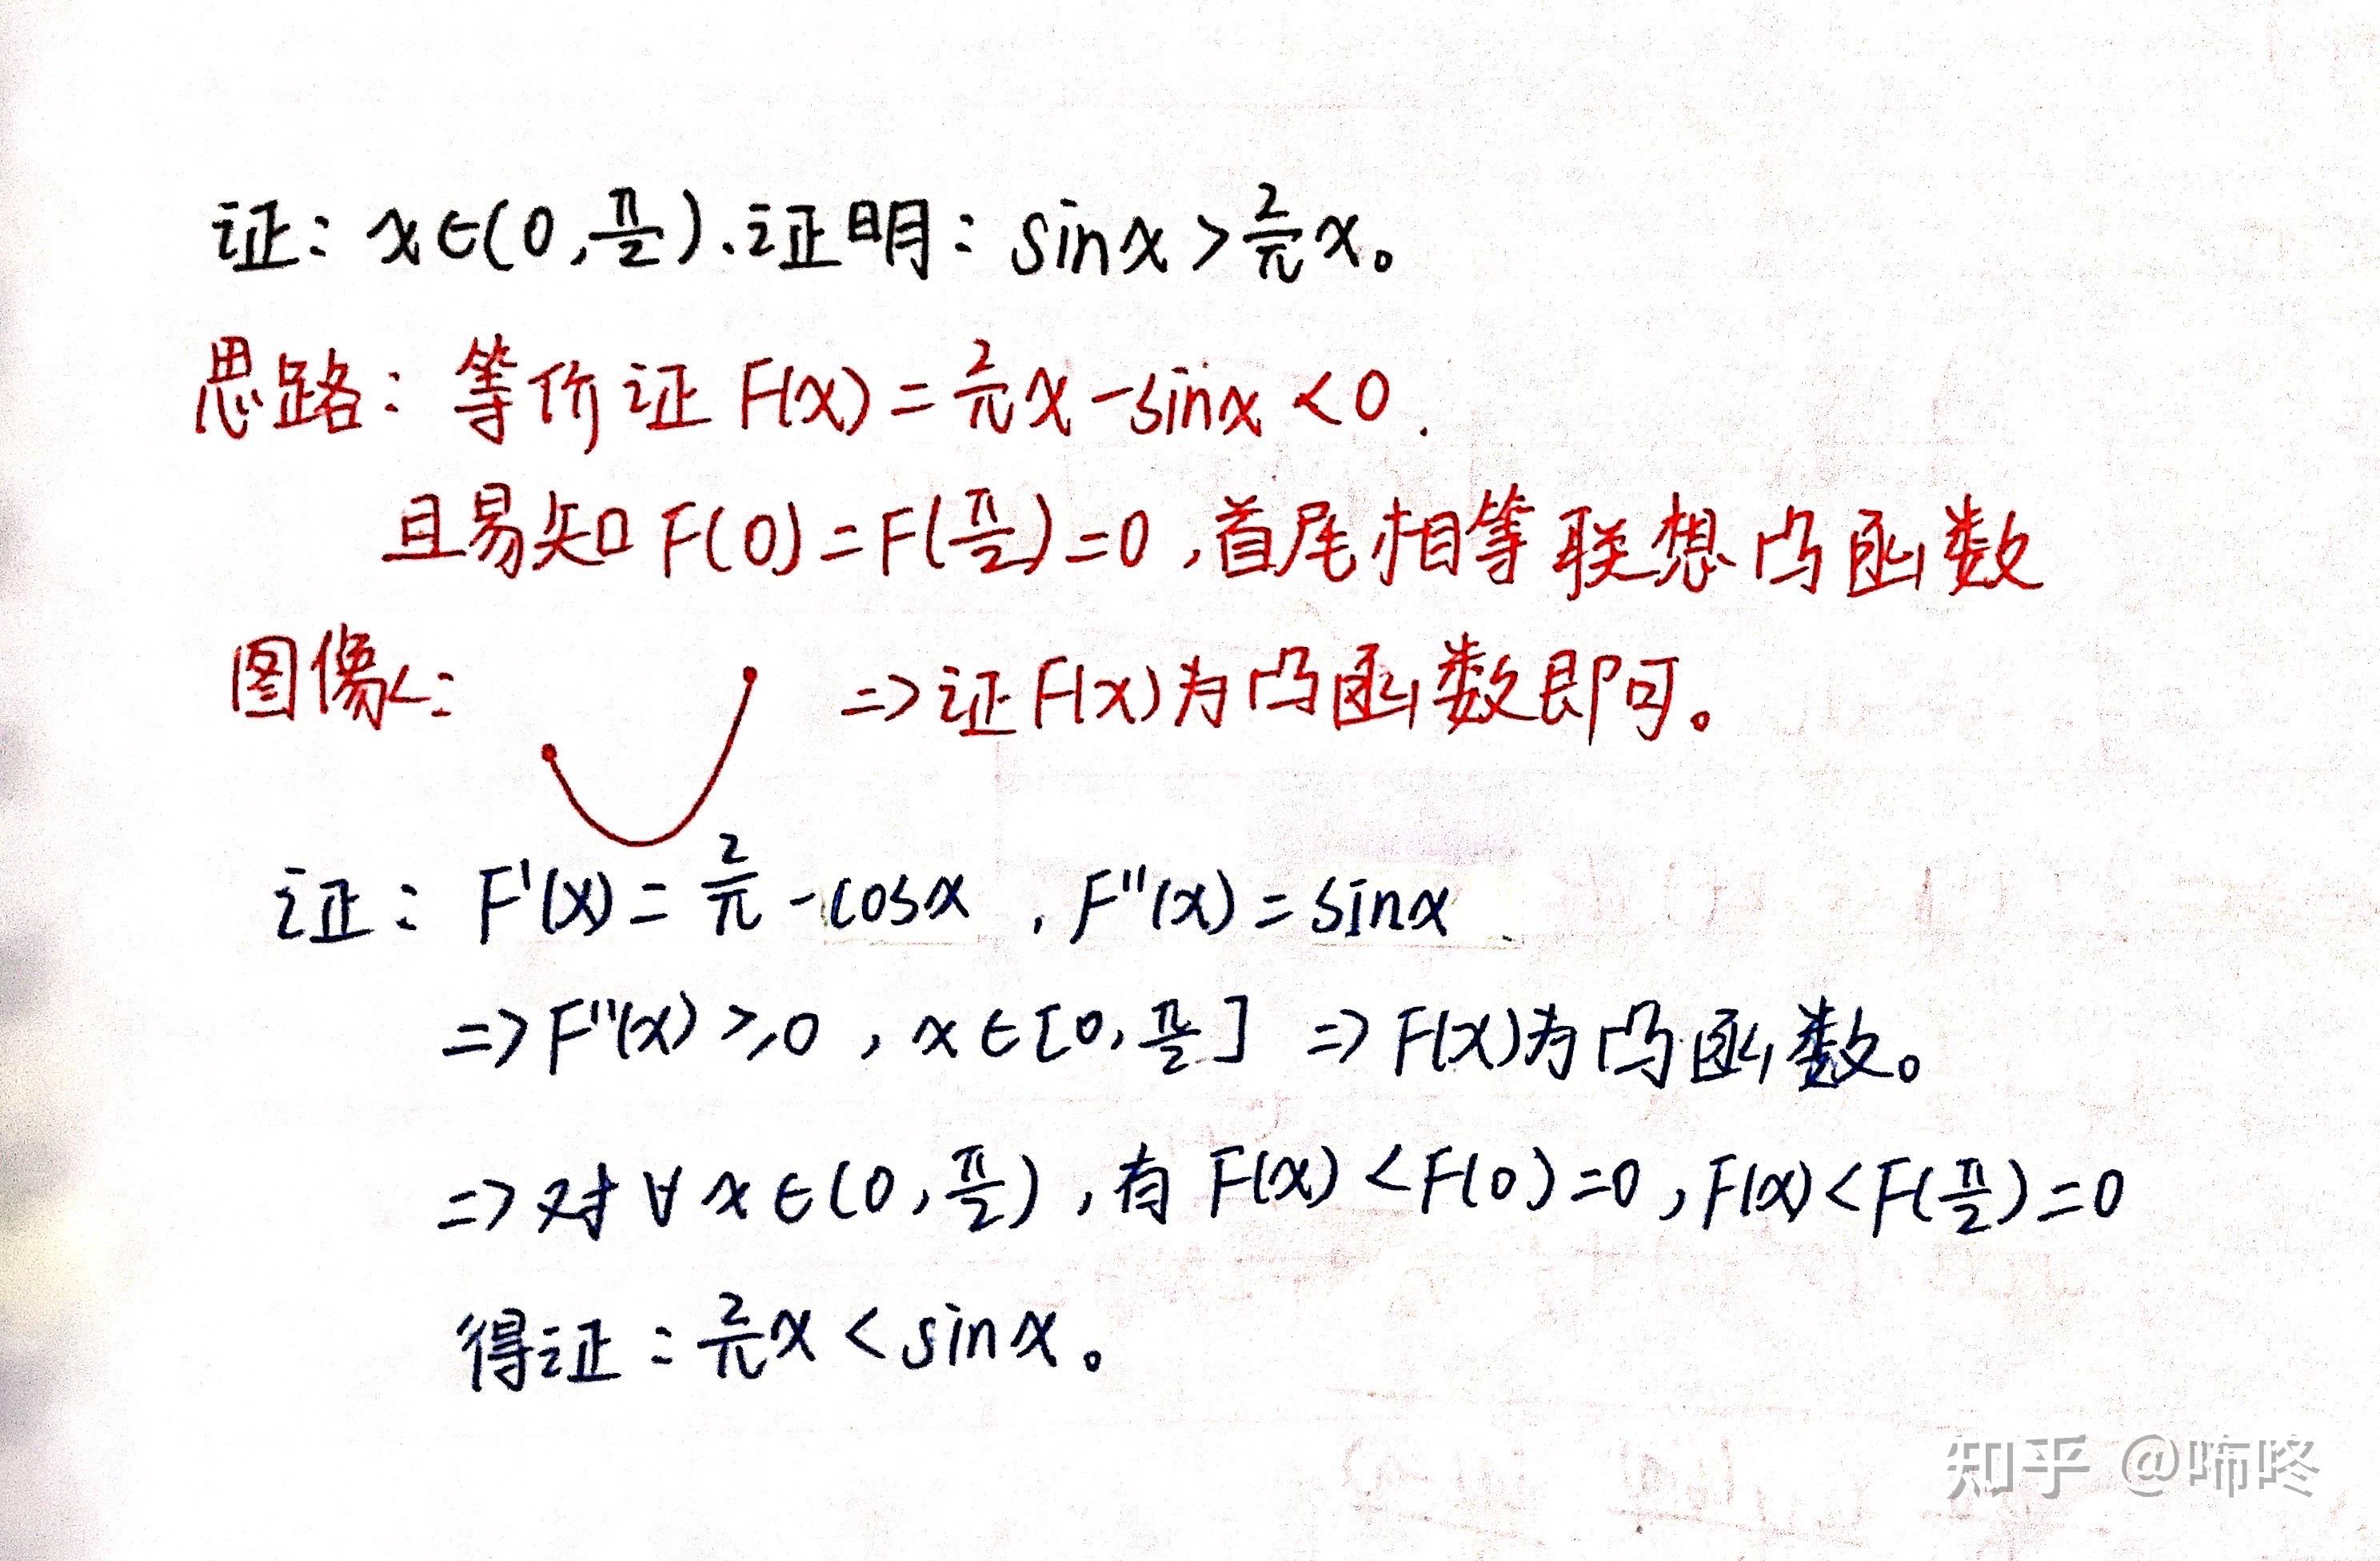 证：x∈(0,π/2).证明：sinx>2/π x。
思路：等价证F(x)=2/π x-sinx<0.
且易知F(0)=F(π/2)=0,首尾相等联想凸函数
图像：
=>证F(x)为凸函数即可。
证：F'(x)=2/π-cosx,F''(x)=sinx
=>F''(x)≥0,x∈[0,π/2]=>F(x)为凸函数。
=>对∀x∈(0,π/2),有F(x)<F(0)=0,F(x)<F(π/2)=0
得证：2/π x<sinx。
知乎 @啼咚